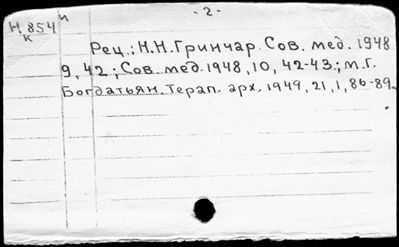 - 2 -
Н. 854 и
к
Рец.: Н.Н.Гринчар. Сов. мед. 1948
9, 42.; Сов. мед. 1948, 10, 42-43.; М.Г.
Богдатьян. Терап. арх., 1949, 21, 1, 86-89.